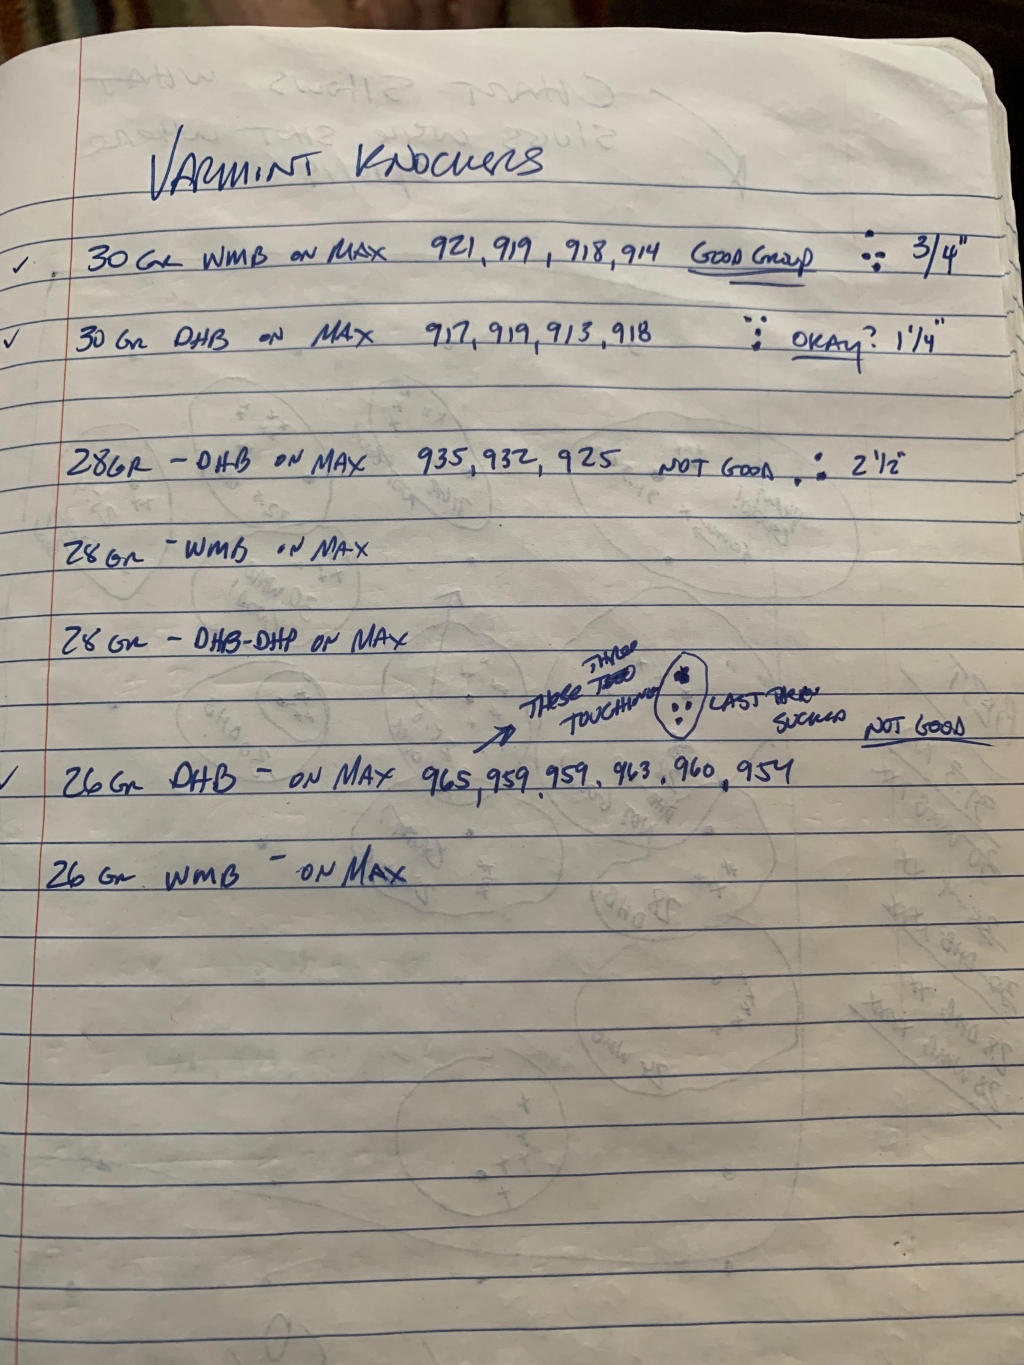 VARMINT KNOCKERS
✓ . 30 GR WMB ON MAX 921, 919, 918, 914 GOOD GROUP 3/4"
✓ 30 GR DHB ON MAX 917, 919, 913, 918 OKAY? 1 1/4"
28GR - DHB ON MAX 935, 932, 925 NOT GOOD 2 1/2"
28 GR - WMB ON MAX
28 GR - DHB-DHP ON MAX
THREE
THESE TOUCHING
LAST THREE
SUCKED
NOT GOOD
✓ 26 GR DHB - ON MAX 965, 959, 959, 963, 960, 954
26 GR WMB - ON MAX